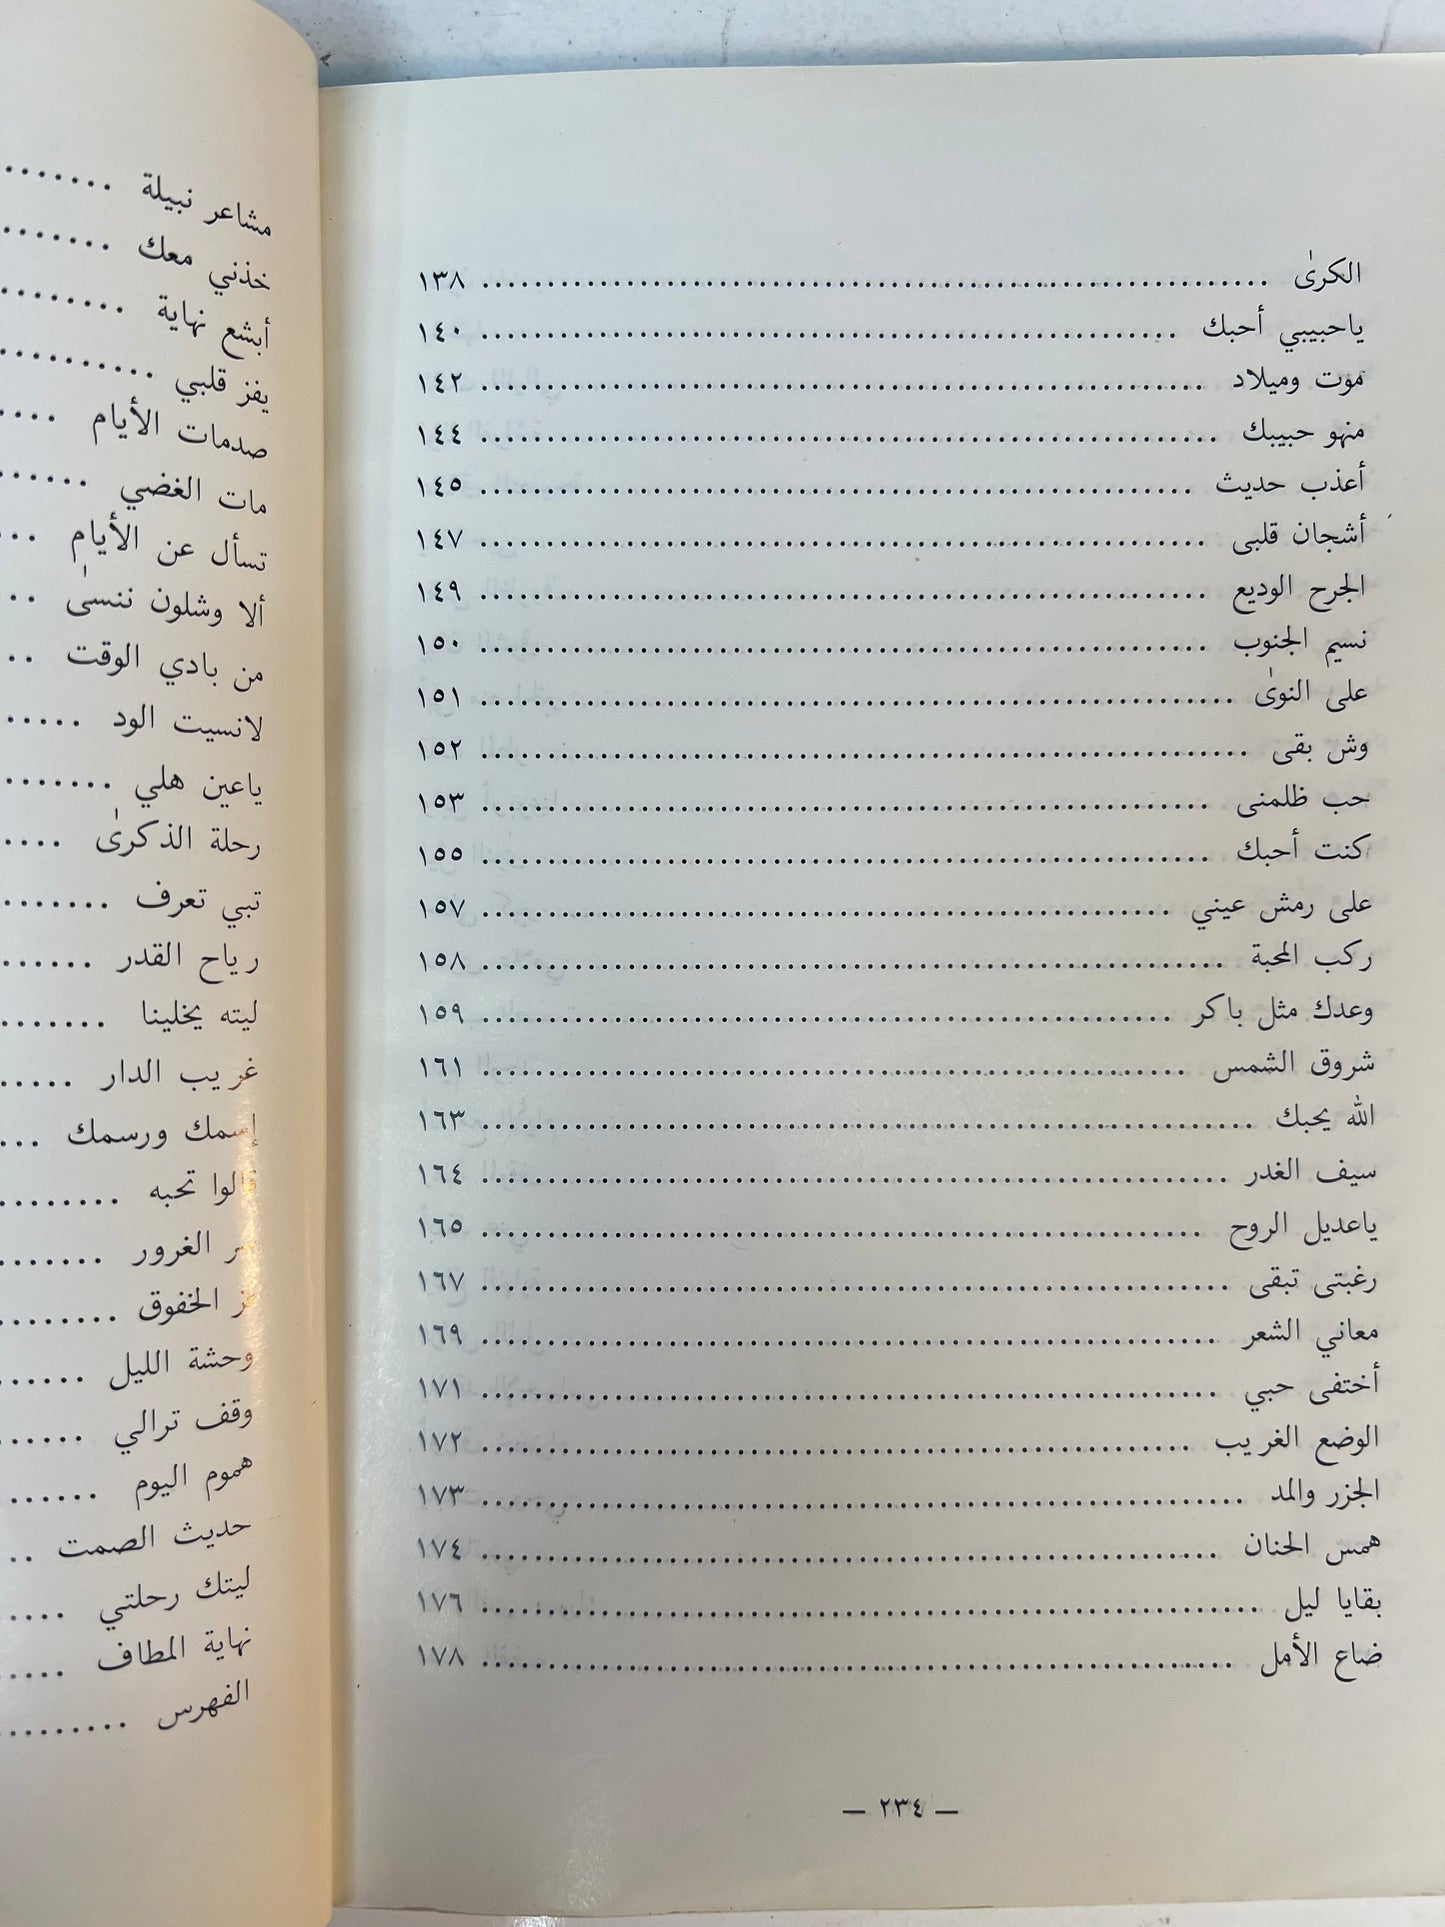 الكرىٰ ........ ١٣٨
ياحبيبي أحبك ........ ١٤٠
موت وميلاد ........ ١٤٢
منهو حبيبك ........ ١٤٤
أعذب حديث ........ ١٤٥
أشجان قلبى ........ ١٤٧
الجرح الوديع ........ ١٤٩
نسيم الجنوب ........ ١٥٠
على النوىٰ ........ ١٥١
وش بقى ........ ١٥٢
حب ظلمنى ........ ١٥٣
كنت أحبك ........ ١٥٥
على رمش عيني ........ ١٥٧
ركب المحبة ........ ١٥٨
وعدك مثل باكر ........ ١٥٩
شروق الشمس ........ ١٦١
الله يحبك ........ ١٦٣
سيف الغدر ........ ١٦٤
ياعديل الروح ........ ١٦٥
رغبتى تبقى ........ ١٦٧
معاني الشعر ........ ١٦٩
أختفى حبي ........ ١٧١
الوضع الغريب ........ ١٧٢
الجزر والمد ........ ١٧٣
همس الحنان ........ ١٧٤
بقايا ليل ........ ١٧٦
ضاع الأمل ........ ١٧٨
— ٢٣٤ —
مشاعر نبيلة ........
خذني معك ........
أبشع نهاية ........
يفز قلبي ........
صدمات الأيام ....
مات الغضي ......
تسأل عن الأيام ...
ألا وشلون ننسىٰ ...
من بادي الوقت ...
لانسيت الود .....
ياعين هلي ........
رحلة الذكرىٰ ....
تبي تعرف ........
رياح القدر ......
ليته يخلينا ........
غريب الدار .....
إسمك ورسمك ...
قالوا تحبه ........
الغرور ........
الخفوق ........
وحشة الليل ......
وقف ترالي ......
هموم اليوم .......
حديث الصمت ..
ليتك رحلتي .....
نهاية المطاف .....
الفهرس .........